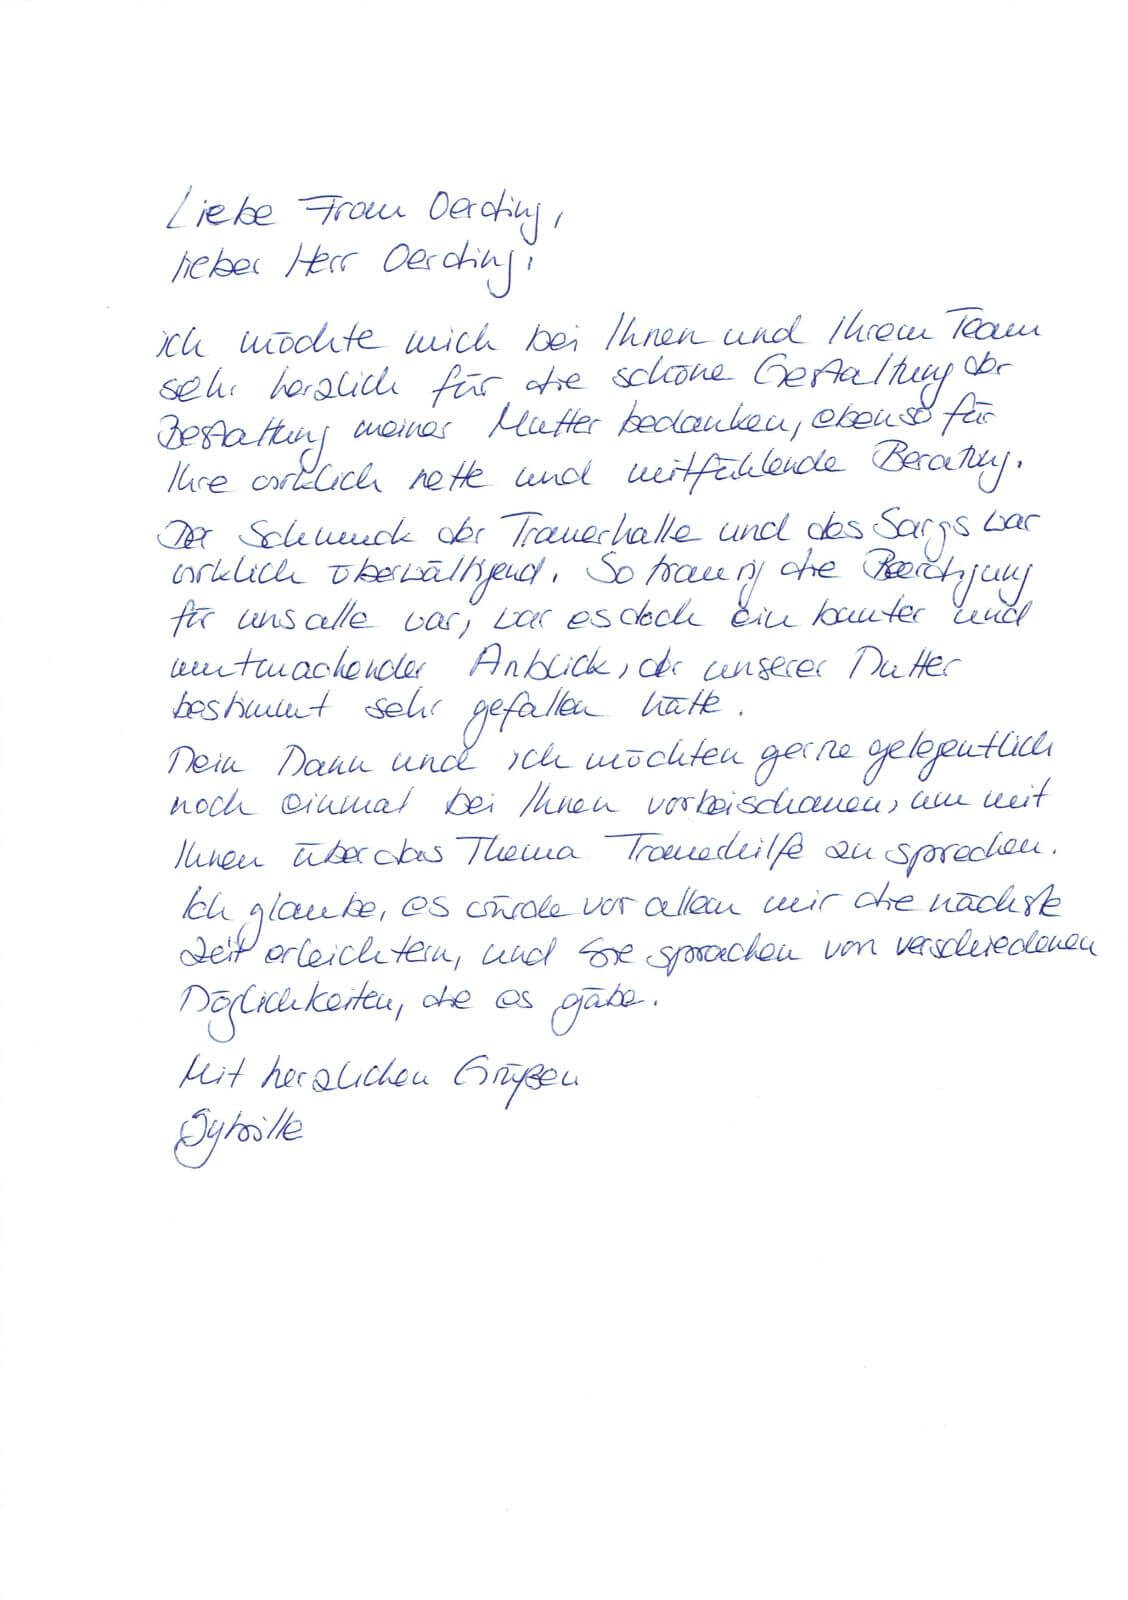 Liebe Frau Oerding,
lieber Herr Oerding,
ich möchte mich bei Ihnen und Ihrem Team
sehr herzlich für die schöne Gestaltung der
Bestattung meiner Mutter bedanken, ebenso für
Ihre wirklich nette und mitfühlende Beratung.
Der Schmuck der Trauerhalle und des Sargs war
wirklich überwältigend. So traurig die Beerdigung
für uns alle war, war es doch ein bunter und
mutmachender Anblick, der unserer Mutter
bestimmt sehr gefallen hätte.
Mein Mann und ich möchten gerne gelegentlich
noch einmal bei Ihnen vorbeischauen, um mit
Ihnen über das Thema Trauerhilfe zu sprechen.
Ich glaube, es würde vor allem mir die nächste
Zeit erleichtern, und Sie sprachen von verschiedenen
Möglichkeiten, die es gäbe.
Mit herzlichen Grüßen
Sybille